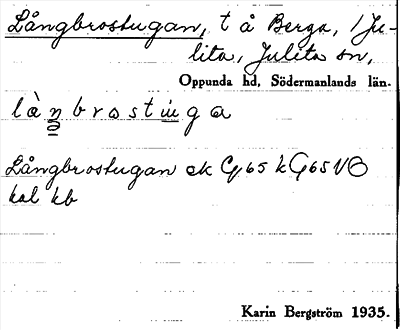 Långbrostugan, t å Berga, 1 Ju-
lita, Julita sn,
Oppunda hd, Södermanlands län.
làŋbrostuga
Långbrostugan ek Gy 65 k G 65 NO
kal kb
Karin Bergström 1935.